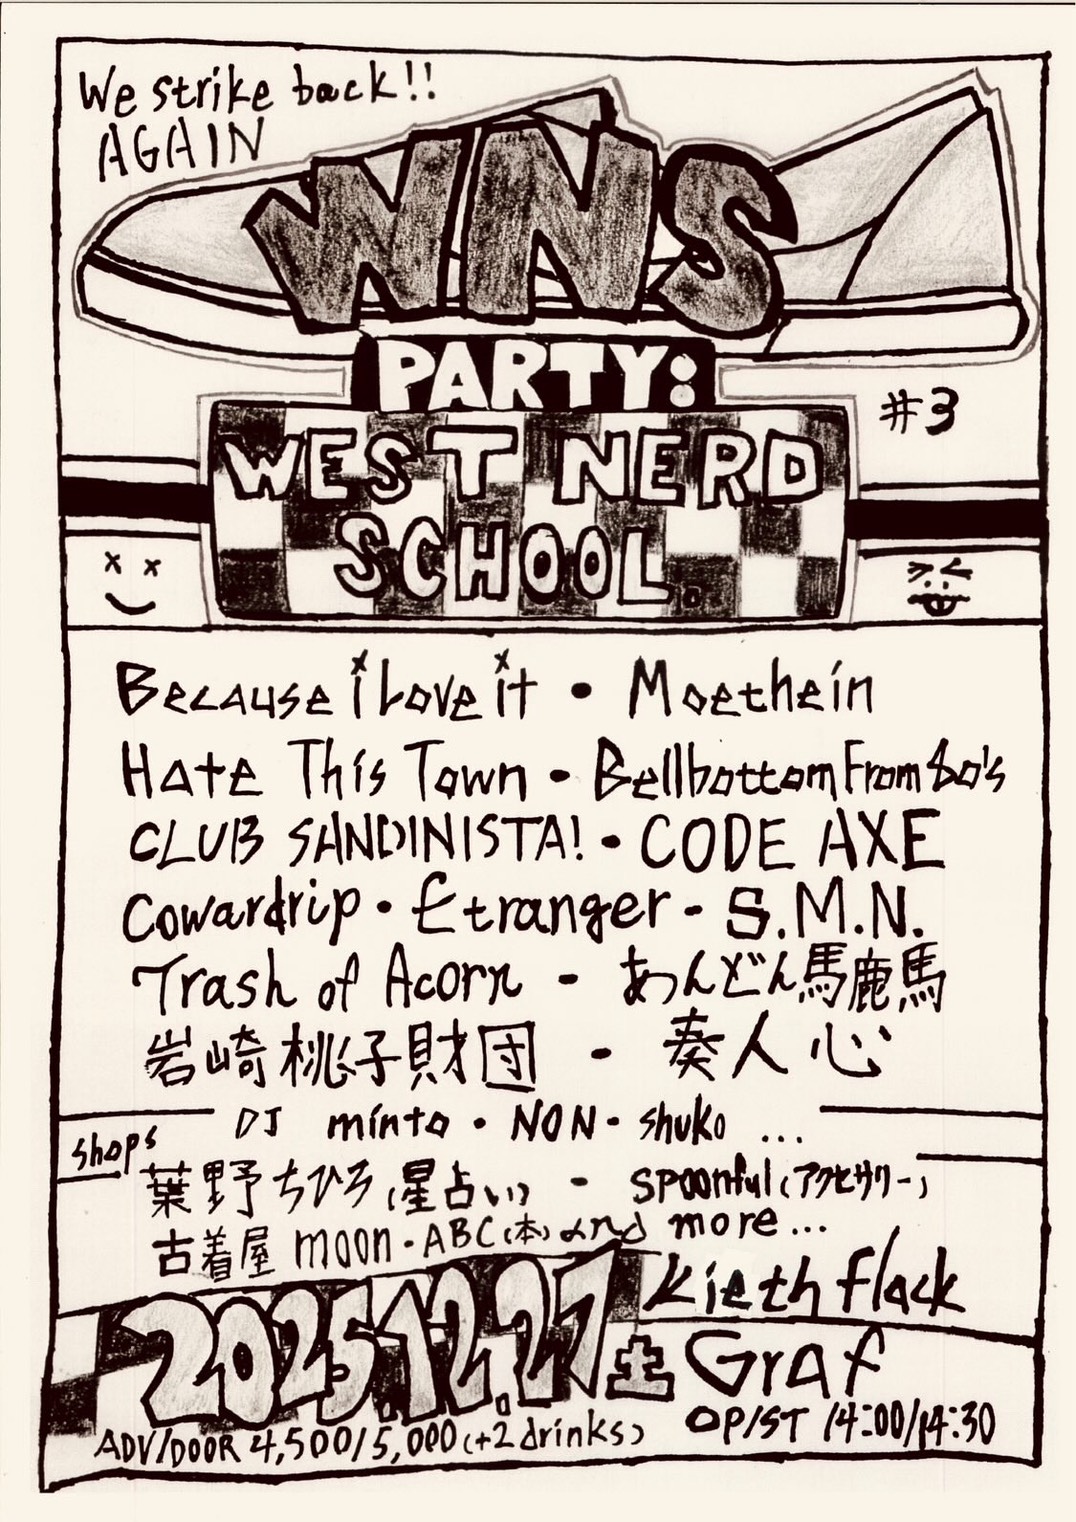 We strike back!!
AGAIN
WNS
PARTY:
#3
WEST NERD
SCHOOL.
Because i Love it • Moethein
Hate This Town • Bellbottom From 80's
CLUB SANDINISTA! • CODE AXE
Cowardrip • Etranger - S.M.N.
Trash of Acorn - あっんどん馬鹿馬
岩崎桃子財団 - 奏人心
DJ minto • NON • shuko ...
shops
葉野ちひろ(星占い) - spoonful(アクセサリー)
古着屋 moon • ABC(本) and more...
2025.12.27土
Kieth flack
Graf
ADV/DOOR 4,500/5,000(+2drinks)
OP/ST 14:00/14:30